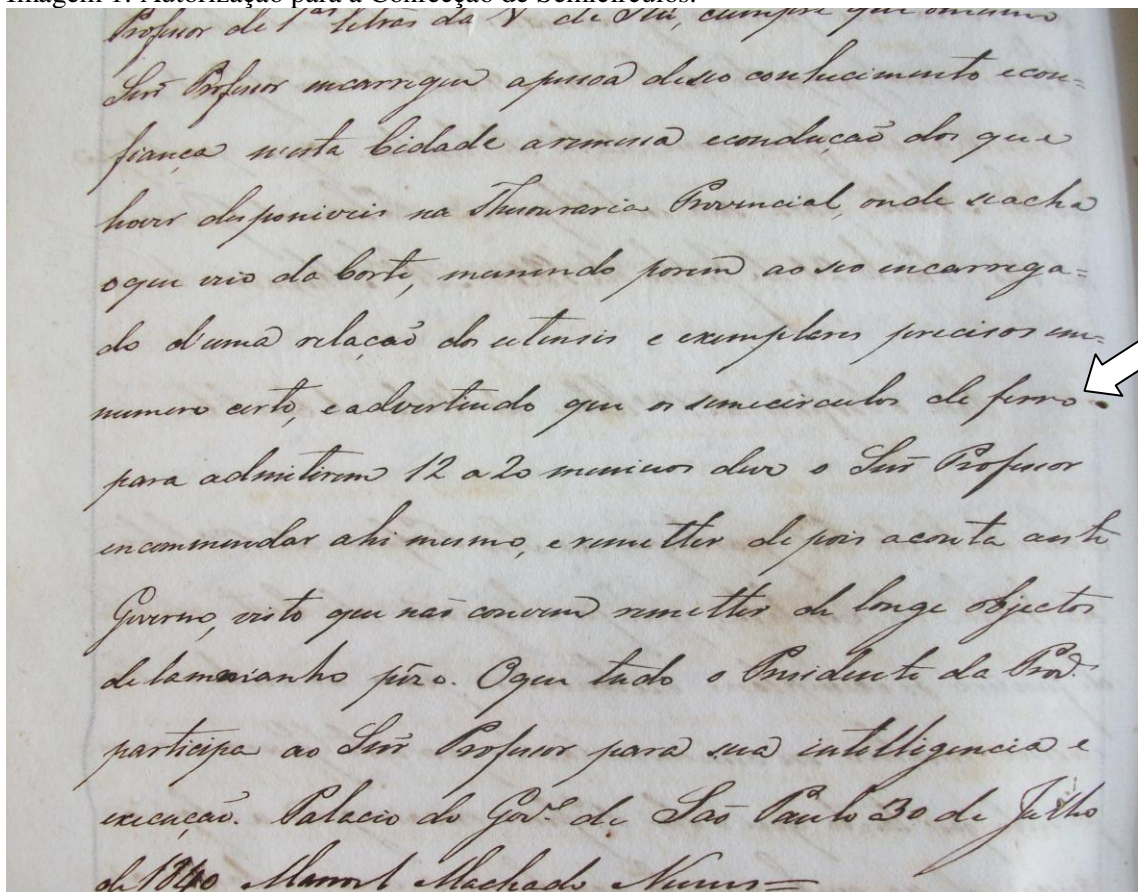 Imagem 1: Autorização para a Confecção de Semicírculos.
Professor de 1as letras da V de Itú, cumpre que o mesmo
Snr̃ Professor encarregue apessoa deseo conhecimento econ=
fiança nesta Cidade aremessa econducção dos que
hover disponiveis na Thesouraria Provincial, onde seacha
oque veio da Corte, munindo porem ao seo encarrega=
do d'uma relação dos utensis e exemplares precisos em
numero certo, e advertindo que os semecirculos de ferro
para admitirem 12 a 20 meninos deve o Snr̃ Professor
encommendar ahi mesmo, e remetter depois aconta aeste
Governo, visto que não convem remetter de longe objectos
detamanho pezo. Oque tudo o Presidente da Prov.ª
participa ao Snr̃ Professor para sua intelligencia e
execução. Palacio do Gov.º de São Paulo 30 de Julho
de 1840 Manoel Machado Nunes=